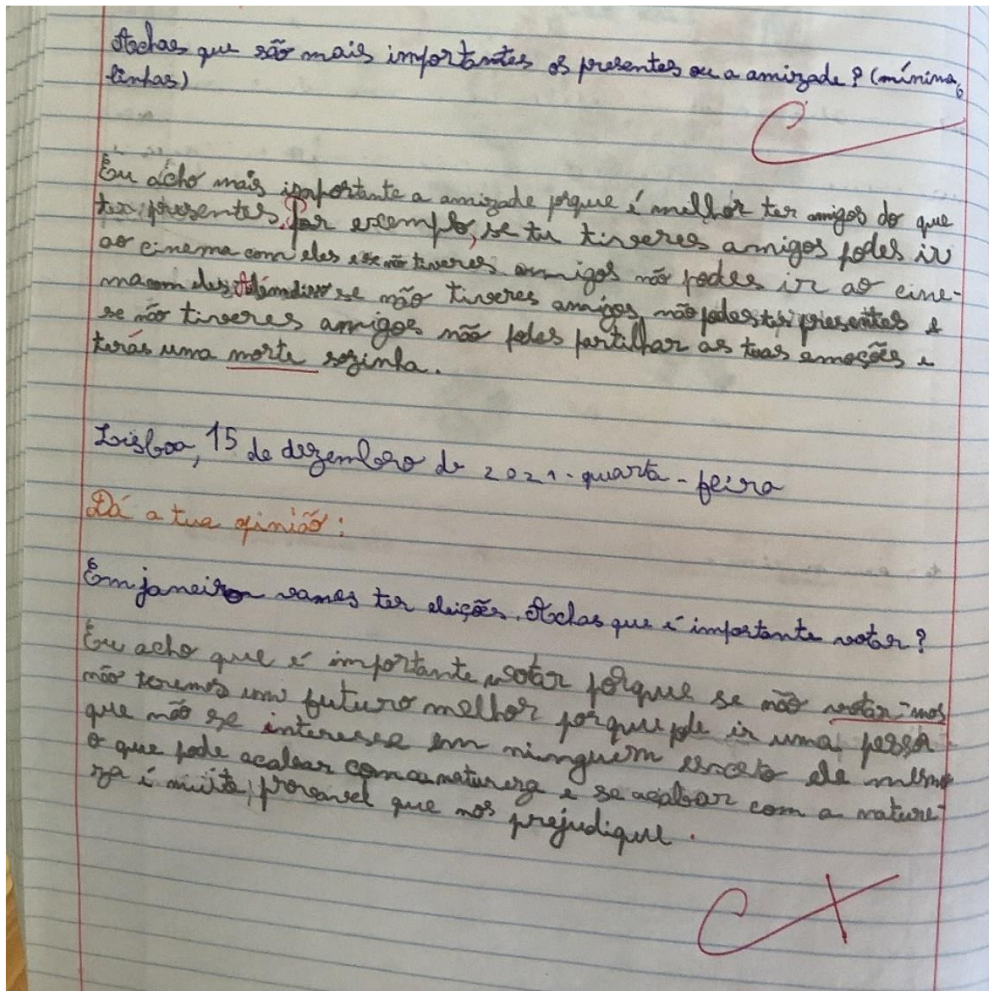 Achas que são mais importantes os presentes ou a amizade? (mínimo 6
linhas)
Eu acho mais importante a amizade porque é melhor ter amigos do que
ter presentes. Por exemplo, se tu tiveres amigos podes ir
ao cinema com eles e se não tiveres amigos não podes ir ao cine-
ma com eles. Além disso se não tiveres amigos não podes ter presentes e
se não tiveres amigos não podes partilhar as tuas emoções e
terás uma morte sozinha.
Lisboa, 15 de dezembro de 2021 - quarta-feira
Dá a tua opinião:
Em janeiro vamos ter eleições. Achas que é importante votar?
Eu acho que é importante votar porque se não votar-mos
não teremos um futuro melhor porque pode ir uma pessoa
que não se interesse em ninguém exceto ele mesmo
o que pode acabar com a natureza e se acabar com a nature-
za é muito provavel que nos prejudique.